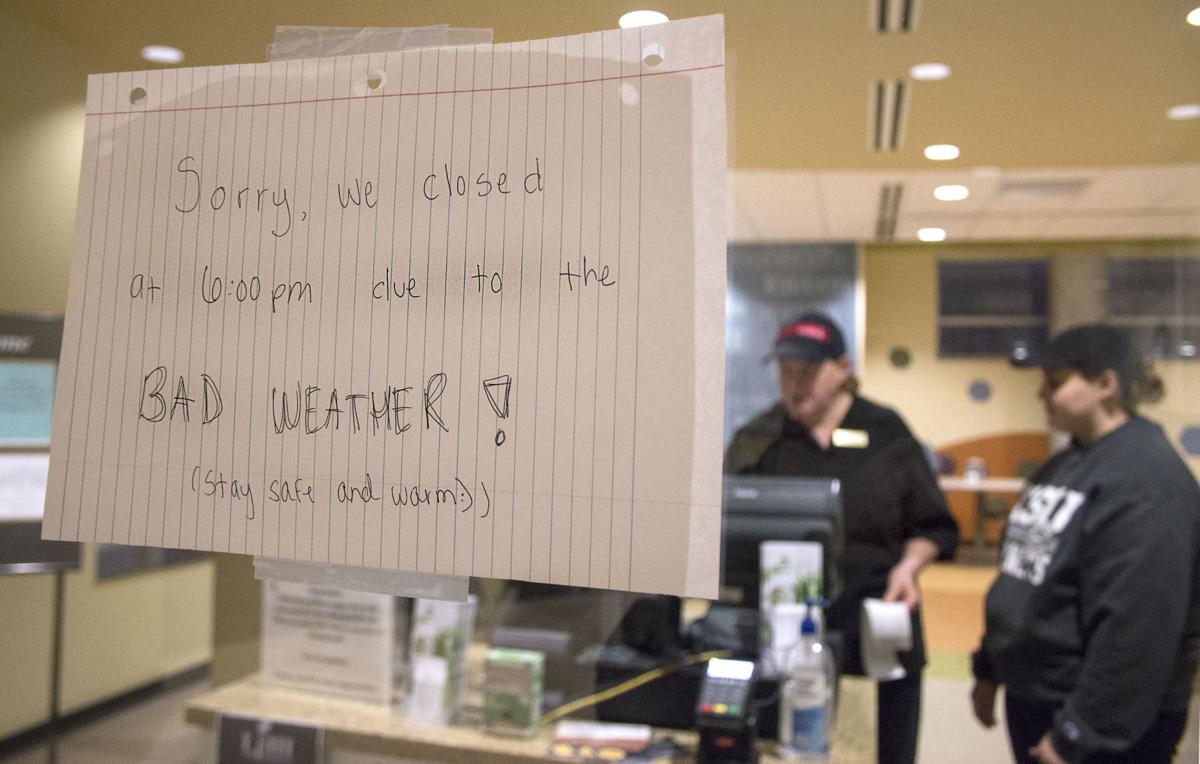 Sorry, we closed
at 6:00 pm due to the
BAD WEATHER!
(stay safe and warm :))